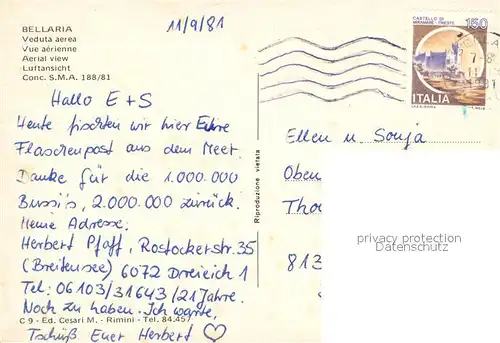 BELLARIA
Veduta aerea
Vue aérienne
Aerial view
Luftansicht
Conc. S.M.A. 188/81
11/9/81
CASTELLO DI
MIRAMARE - TRIESTE
150
ITALIA
Hallo E + S
Heute fischten wir hier Eure
Flaschenpost aus dem Meer.
Danke für die 1.000.000
Bussi's, 2.000.000 zurück.
Meine Adresse:
Herbert Pfaff, Rostockerstr. 35
(Breitensee) 6072 Dreieich 1
Tel: 06103/31643/21 Jahre.
Noch zu haben. Ich warte,
Tschüß Euer Herbert
C 9 - Ed. Cesari M. - Rimini - Tel. 84.457
Riproduzione vietata
Ellen u. Sonja
Oben
Tho
813
privacy protection
Datenschutz